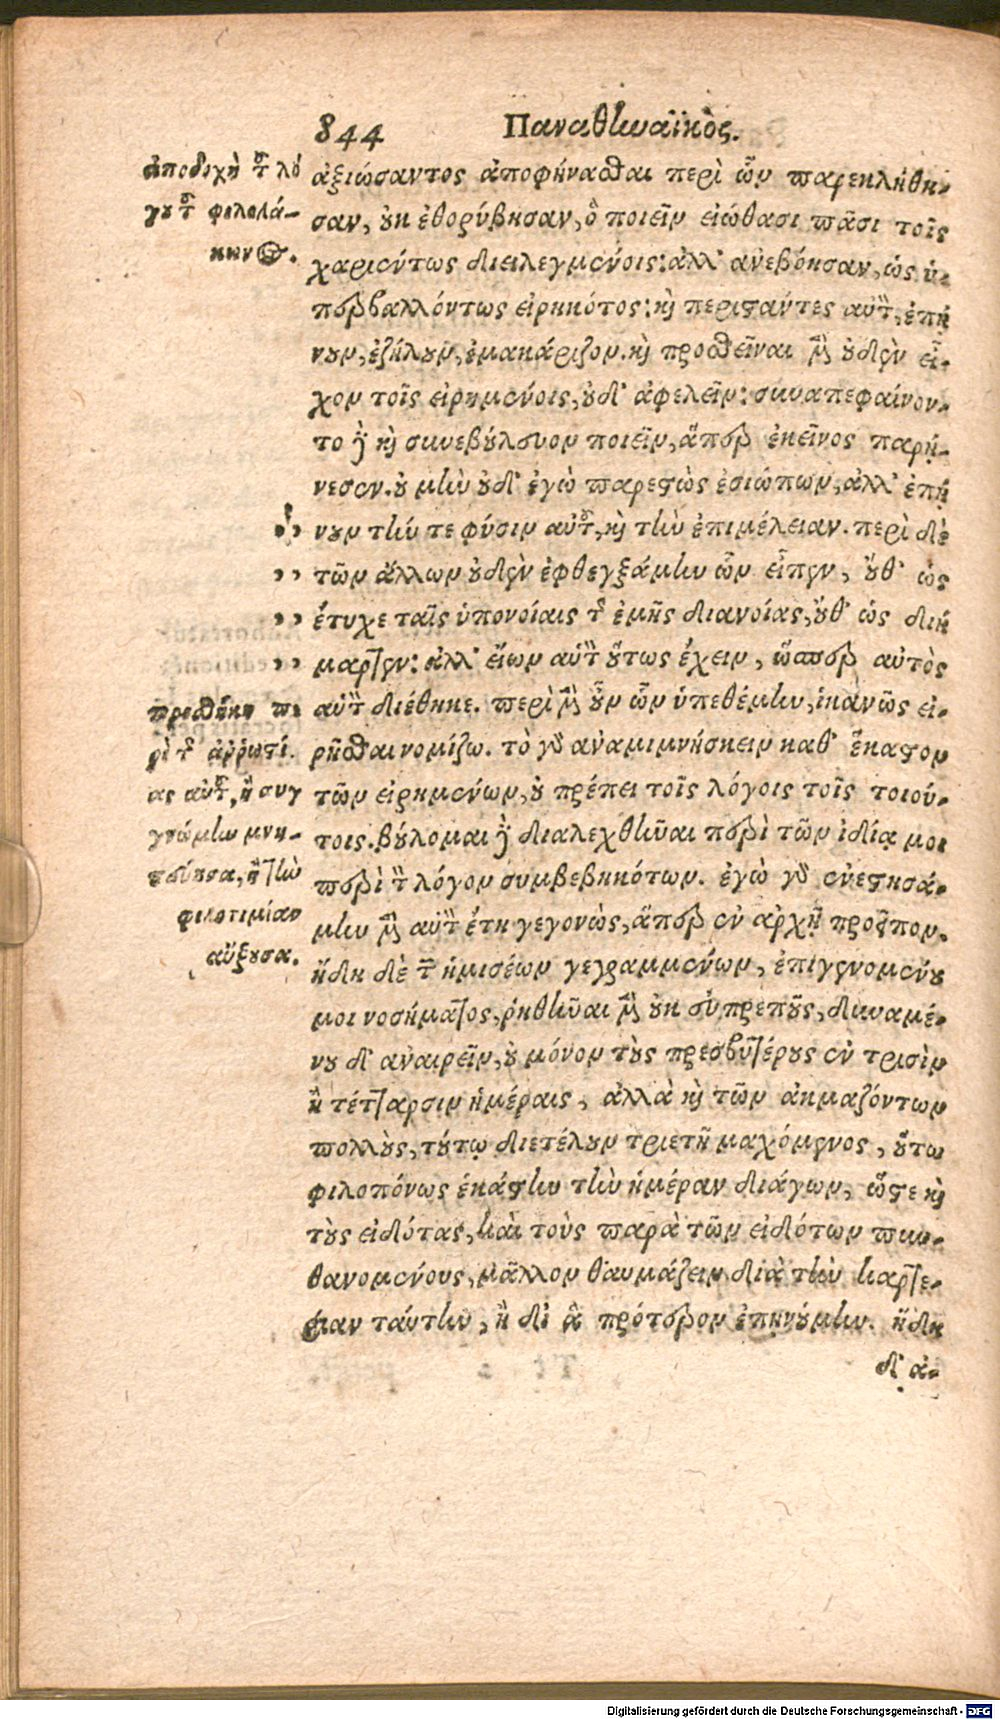 844 Παναθηναϊκὸς.
ἀξιώσαντος ἀποφήνασθαι περὶ ὧν παρεκλήθη-
σαν, οὐκ ἐθορύβησαν, ὃ ποιεῖν εἰώθασι πᾶσι τοῖς
χαριέντως διειλεγμένοις: ἀλλ' ἀνεβόησαν, ὡς ὑ-
περβαλλόντως εἰρηκότος: καὶ περιστάντες αὐτὸν, ἐπῄ-
νουν, ἐζήλουν, ἐμακάριζον. καὶ προσθεῖναι μὲν οὐδὲν εἶ-
χον τοῖς εἰρημένοις, οὐδ' ἀφελεῖν: συναπεφαίνον-
το δὲ καὶ συνεβούλευον ποιεῖν, ἅπερ ἐκεῖνος παρῄ-
νεσεν. οὐ μὴν οὐδ' ἐγὼ παρεστὼς ἐσιώπων, ἀλλ' ἐπῄ
νουν τήν τε φύσιν αὐτοῦ, καὶ τὴν ἐπιμέλειαν. περὶ δὲ
τῶν ἄλλων οὐδὲν ἐφθεγξάμην ὧν εἶπεν, οὔθ' ὡς
ἔτυχε ταῖς ὑπονοίαις τῆς ἐμῆς διανοίας, οὔθ' ὡς διή
μαρτεν: ἀλλ' εἴων αὐτὸν οὕτως ἔχειν, ὥσπερ αὐτὸς
αὑτὸν διέθηκε. περὶ μὲν οὖν ὧν ὑπεθέμην, ἱκανῶς εἰ-
ρῆσθαι νομίζω. τὸ γὰρ ἀναμιμνήσκειν καθ' ἕκαστον
τῶν εἰρημένων, οὐ πρέπει τοῖς λόγοις τοῖς τοιού-
τοις. βούλομαι δὲ διαλεχθῆναι περὶ τῶν ἰδίᾳ μοι
περὶ τὸν λόγον συμβεβηκότων. ἐγὼ γὰρ ἐνεστησά-
μην μὲν αὐτὸν ἔτη γεγονὼς, ἅπερ ἐν ἀρχῇ προεῖπον.
ἤδη δὲ τῶν ἡμισέων γεγραμμένων, ἐπιγενομένου
μοι νοσήματος, ῥηθῆναι μὲν οὐκ εὐπρεποῦς, δυναμέ-
νου δ' ἀναιρεῖν, οὐ μόνον τοὺς πρεσβυτέρους ἐν τρισὶν
ἢ τέτταρσιν ἡμέραις, ἀλλὰ καὶ τῶν ἀκμαζόντων
πολλοὺς, τούτῳ διετέλουν τριετῆ μαχόμενος, οὕτω
φιλοπόνως ἑκάστην τὴν ἡμέραν διάγων, ὥστε καὶ
τοὺς εἰδότας, καὶ τοὺς παρὰ τῶν εἰδότων πυν-
θανομένους, μᾶλλον θαυμάζειν διὰ τὴν καρτε-
ρίαν ταύτην, ἢ δι' ἃ πρότερον ἐπῃνούμην. ἤδη
δ' ἀ-
ἀποδοχὴ τοῦ λό
γου τοῦ φιλολά-
κωνος.
προσθήκη πε
ρὶ τῆς ἀῤῥωστί.
ας αὐτοῦ, ἢ συγ
γνώμην μνη-
στεύουσα, ἢ τὴν
φιλοτιμίαν
αὔξουσα.